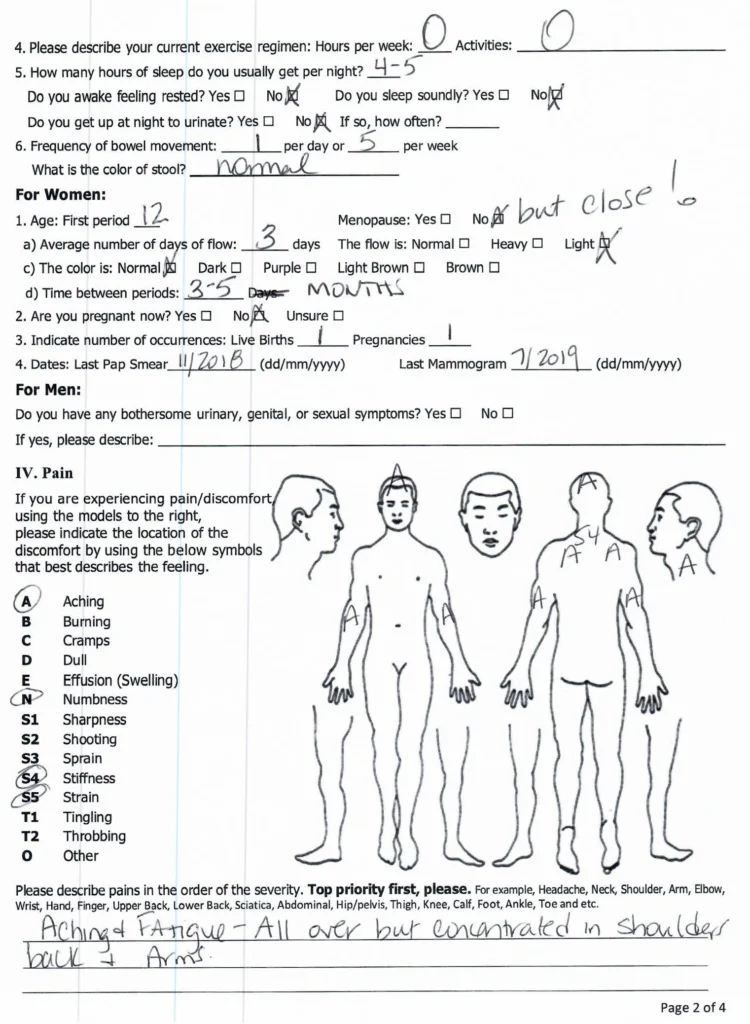 4. Please describe your current exercise regimen: Hours per week: 0 Activities: 0
5. How many hours of sleep do you usually get per night? 4-5
Do you awake feeling rested? Yes ☐ No ☒ Do you sleep soundly? Yes ☐ No ☒
Do you get up at night to urinate? Yes ☐ No ☒ If so, how often? ______
6. Frequency of bowel movement: 1 per day or 5 per week
What is the color of stool? normal
For Women:
1. Age: First period 12 Menopause: Yes ☐ No ☒ but close!
a) Average number of days of flow: 3 days The flow is: Normal ☐ Heavy ☐ Light ☒
c) The color is: Normal ☒ Dark ☐ Purple ☐ Light Brown ☐ Brown ☐
d) Time between periods: 3-5 Days MONTHS
2. Are you pregnant now? Yes ☐ No ☒ Unsure ☐
3. Indicate number of occurrences: Live Births 1 Pregnancies 1
4. Dates: Last Pap Smear 11/2018 (dd/mm/yyyy) Last Mammogram 7/2019 (dd/mm/yyyy)
For Men:
Do you have any bothersome urinary, genital, or sexual symptoms? Yes ☐ No ☐
If yes, please describe:
IV. Pain
If you are experiencing pain/discomfort,
using the models to the right,
please indicate the location of the
discomfort by using the below symbols
that best describes the feeling.
A Aching
B Burning
C Cramps
D Dull
E Effusion (Swelling)
N Numbness
S1 Sharpness
S2 Shooting
S3 Sprain
S4 Stiffness
S5 Strain
T1 Tingling
T2 Throbbing
O Other
A A
S4
A A A
A A A A
Please describe pains in the order of the severity. Top priority first, please. For example, Headache, Neck, Shoulder, Arm, Elbow,
Wrist, Hand, Finger, Upper Back, Lower Back, Sciatica, Abdominal, Hip/pelvis, Thigh, Knee, Calf, Foot, Ankle, Toe and etc.
Aching & FAtigue - All over but concntrated in shoulders
back + Arms.
Page 2 of 4